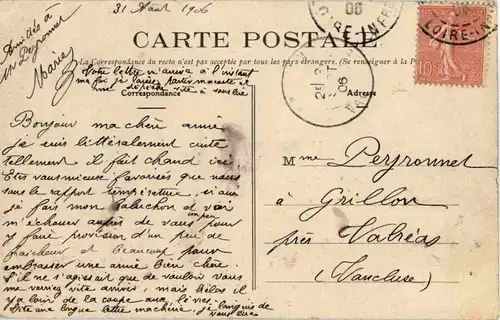 31 Aout 1906
Amitiés à
Mr Peyronnet
Marie
CARTE POSTALE
La Correspondance du recto n'est pas acceptée par tous les pays étrangers. (Se renseigner à la
Votre lettre m'arrive à l'instant
ma foi je laisse partir ma carte et
me dépêche vite à vous lire
Correspondance
Adresse
Bonjour ma chère amie
je suis littéralement cuite
tellement il fait chaud ici
Etes vous mieux favorisés que nous
sous le rapport température, si oui
je fais mon baluchon et vais
m'échouer auprès de vous pour
un peu
y faire provision d'un peu de
fraicheur et beaucoup pour
embrasser une amie bien chère
S'il ne s'agissait que de vouloir vous
me verriez vite arriver, mais hélas il
y a loin de la coupe aux lèvres.
Vite une longue lettre ma chérie, j'ai languis de
vous lire
Mme Peyronnet
à Grillon
près Valréas
(Vaucluse)
LOIRE-INF
LOIRE-IN
06
10